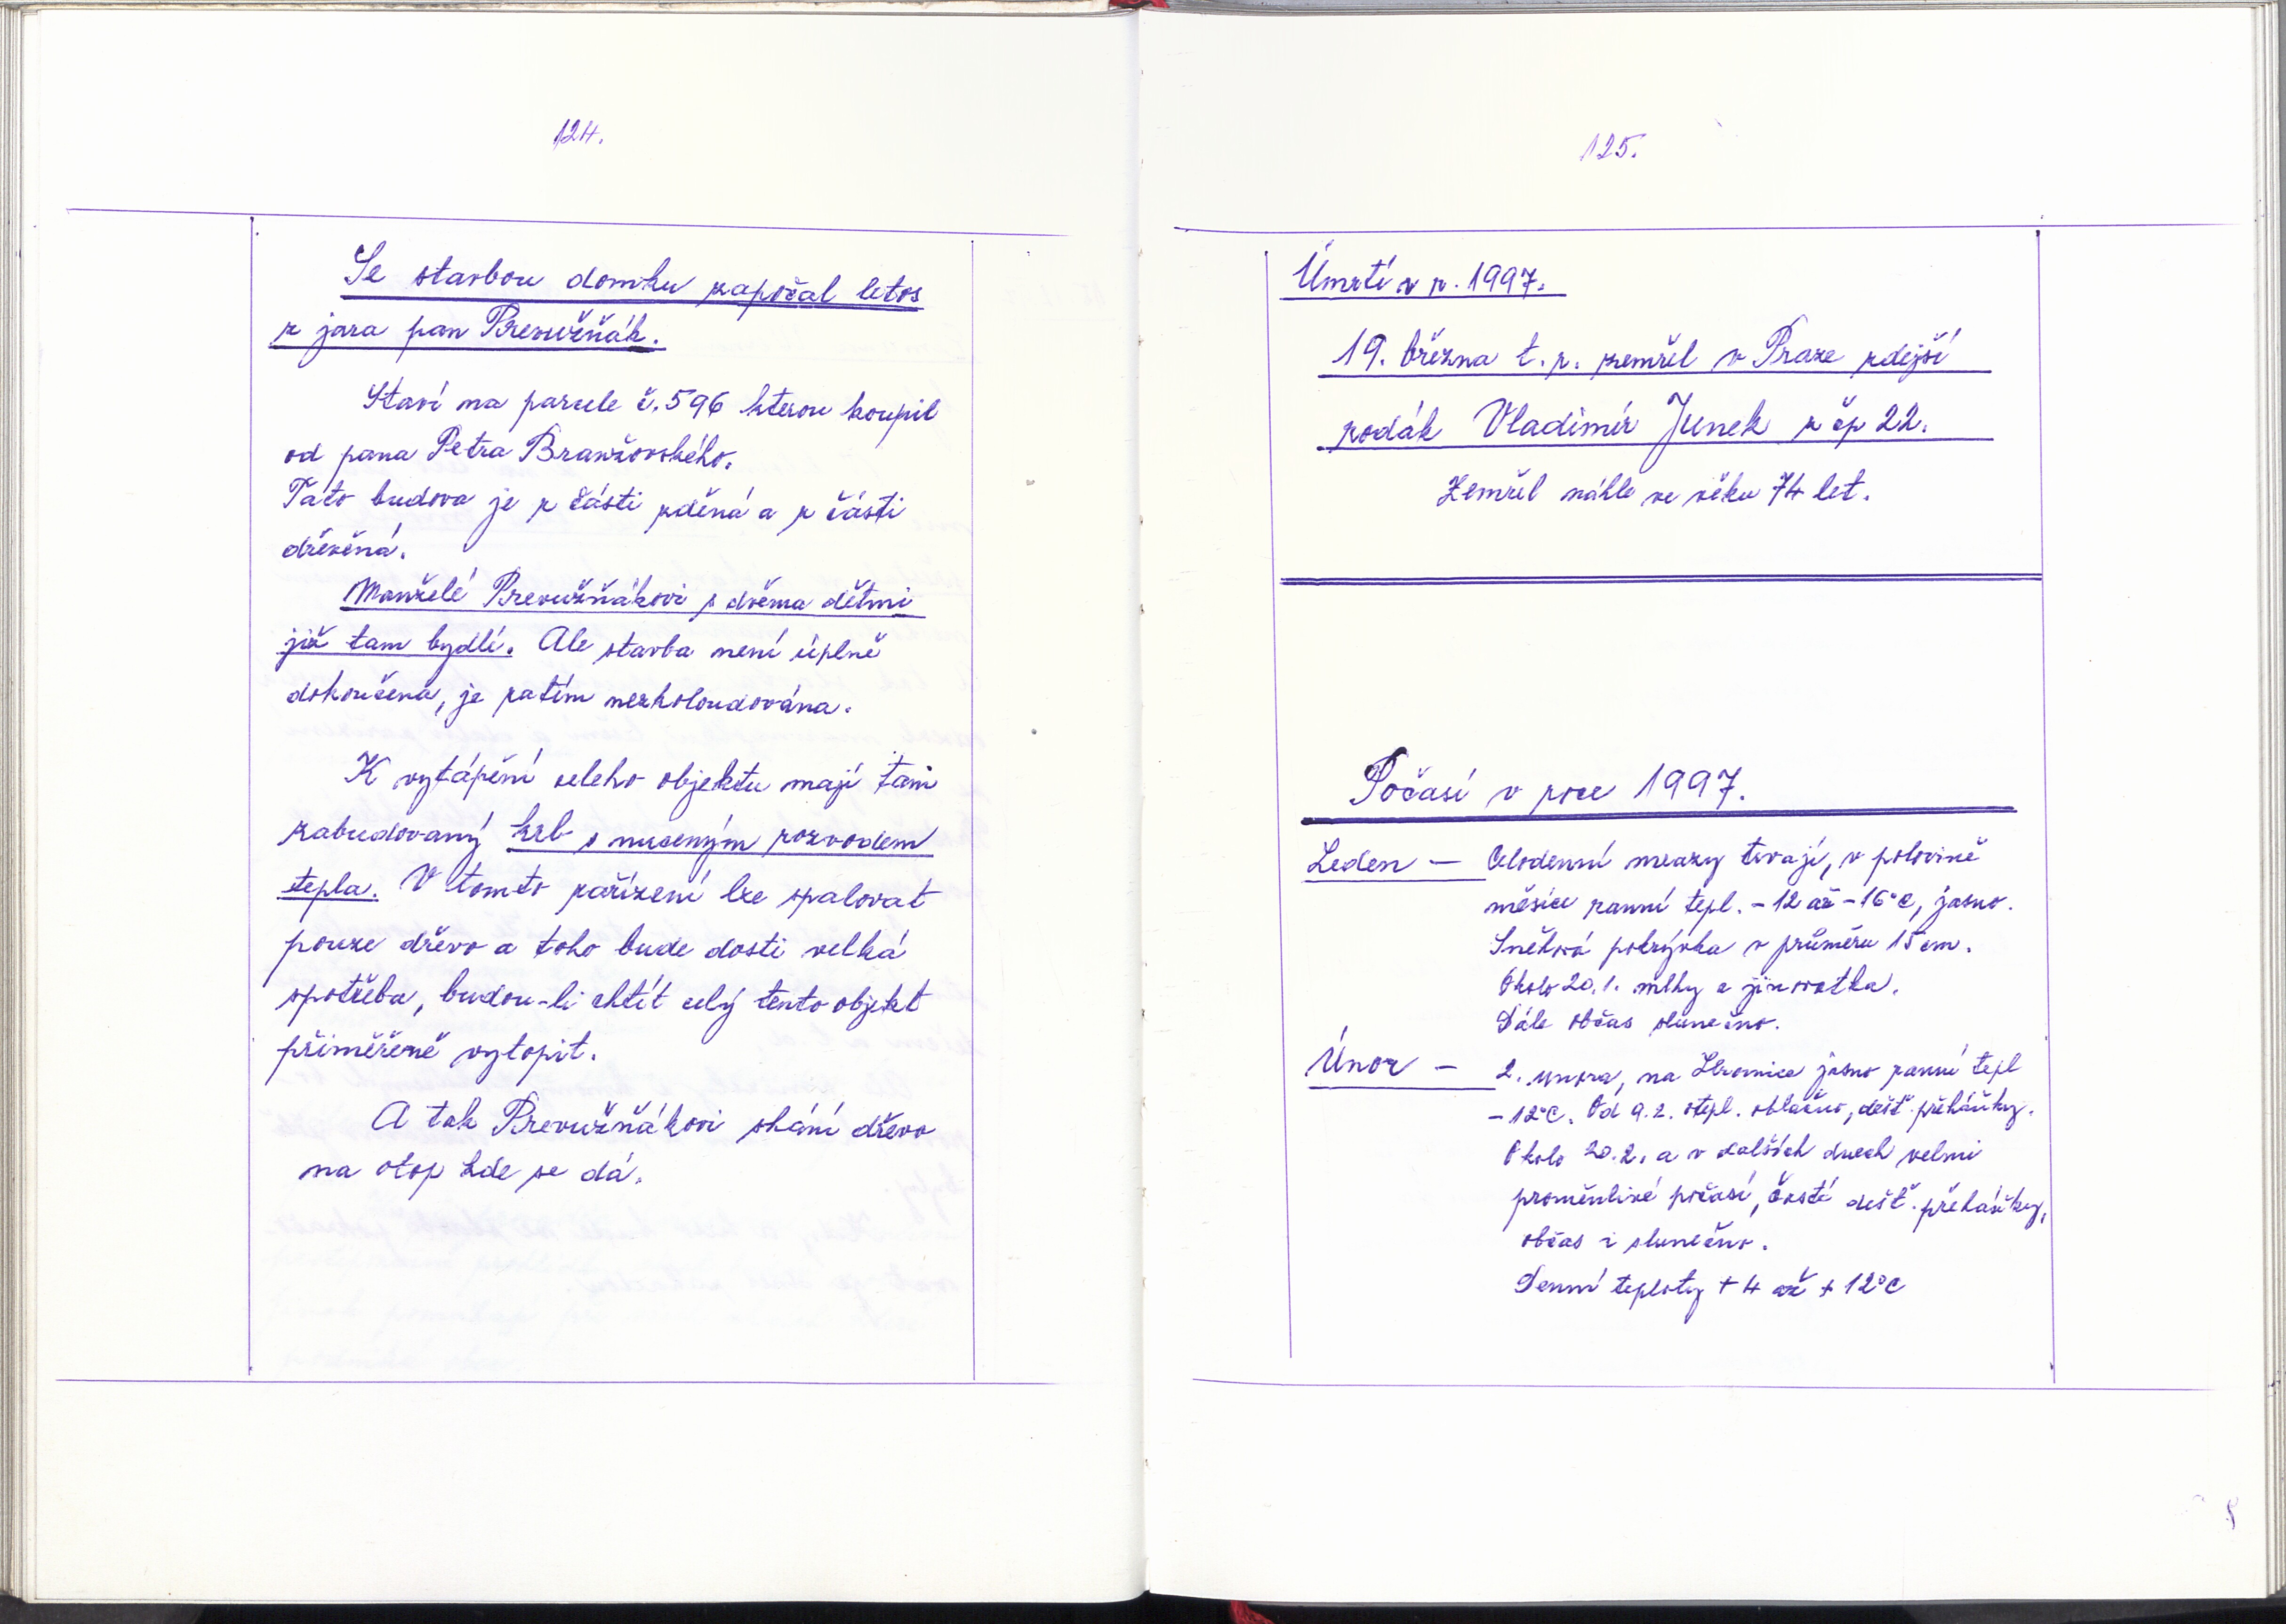 124.
Se stavbou domku započal letos
z jara pan Brevužňák.
Staví na parcele č. 596 kterou koupil
od pana Petra Branžovského.
Tato budova je z části zděná a z části
dřevěná.
Manželé Brevužňákovi s dvěma dětmi
již tam bydlí. Ale stavba není úplně
dokončena, je zatím nezkoloudována.
K vytápění celeho objektu mají tam
zabudovaný krb s nuceným rozvodem
tepla. V tomto zařízení lze spalovat
pouze dřevo a toho bude dosti velká
spotřeba, budou-li chtít celý tento objekt
přiměřeně vytopit.
A tak Brevužňákovi shání dřevo
na otop kde se dá.
125.
Úmrtí v r. 1997.
19. března t.r. zemřel v Praze zdejší
rodák Vladimír Junek z čp 22.
Zemřel náhle ve věku 74 let.
Počasí v roce 1997.
Leden — Celodenní mrazy trvají, v polovině
měsíce ranní tepl. -12 až -16°C, jasno.
Sněhová pokrývka v průměru 15 cm.
Okolo 20.1. mlhy a jinovatka.
Dále občas slunečno.
Únor — 2. února, na Hromnice jasno ranní tepl
-12°C. Od 9.2. otepl. oblačno, dešť. přeháňky.
Okolo 20.2. a v dalších dnech velmi
proměnlivé počasí, časté dešť. přeháňky,
občas i slunečno.
Denní teploty +4 až +12°C